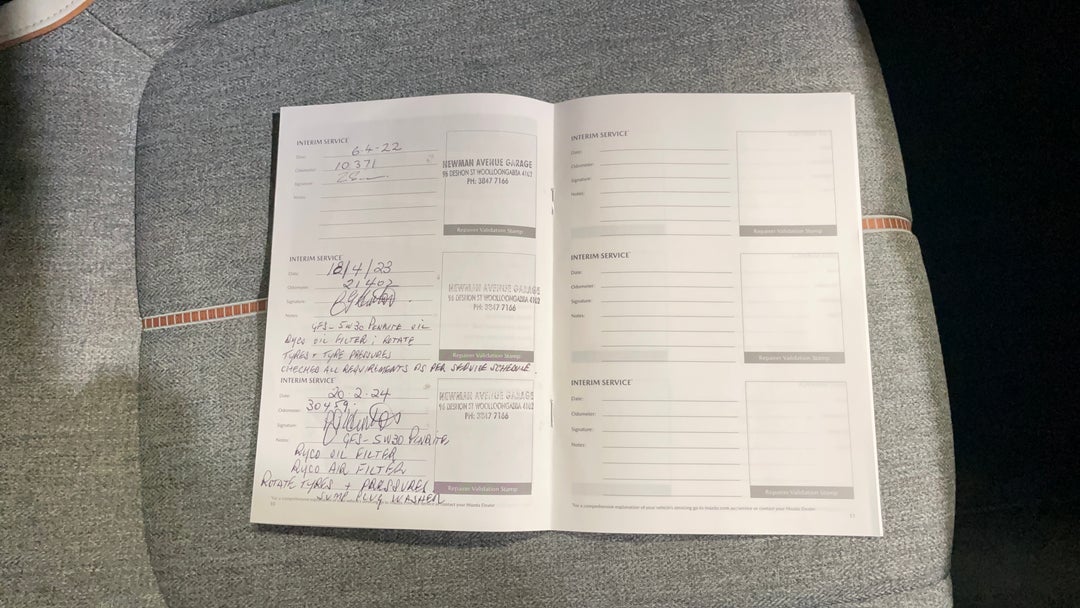 INTERIM SERVICE
Date: 6-4-22
Odometer: 10371
Signature:
Notes:
NEWMAN AVENUE GARAGE
96 DESHON ST WOOLLOONGABBA 4102
PH: 3847 7166
Repairer Validation Stamp
INTERIM SERVICE
Date: 18/4/23
Odometer: 21402
Signature:
Notes:
GFS-5W30 PENRITE OIL
RYCO OIL FILTER; ROTATE
TYRES + TYRE PRESSURES
CHECKED ALL REQUIREMENTS AS PER SERVICE SCHEDULE.
NEWMAN AVENUE GARAGE
96 DESHON ST WOOLLOONGABBA 4102
PH: 3847 7166
Repairer Validation Stamp
INTERIM SERVICE
Date: 20-2-24
Odometer: 30459
Signature:
Notes: GFS-5W30 PENRITE
RYCO OIL FILTER
RYCO AIR FILTER
ROTATE TYRES + PRESSURES
SUMP PLUG WASHER
NEWMAN AVENUE GARAGE
96 DESHON ST WOOLLOONGABBA 4102
PH: 3847 7166
Repairer Validation Stamp
INTERIM SERVICE
Date:
Odometer:
Signature:
Notes:
Repairer Validation Stamp
INTERIM SERVICE
Date:
Odometer:
Signature:
Notes:
Repairer Validation Stamp
INTERIM SERVICE
Date:
Odometer:
Signature:
Notes:
Repairer Validation Stamp
For a comprehensive explanation of your vehicle's servicing go to mazda.com.au/service or contact your Mazda Dealer